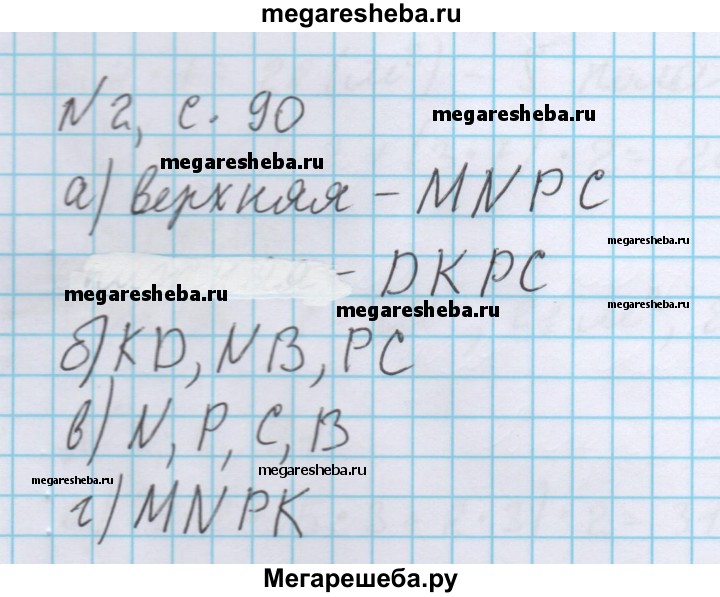 megaresheba.ru
N 2, с. 90
megaresheba.ru
megaresheba.ru
а) верхняя - MNPC
megaresheba.ru
- DKPC
megaresheba.ru
megaresheba.ru
б) KD, NB, PC
в) N, P, C, B
megaresheba.ru
megaresheba.ru
г) MNPK
Мегарешеба.ру